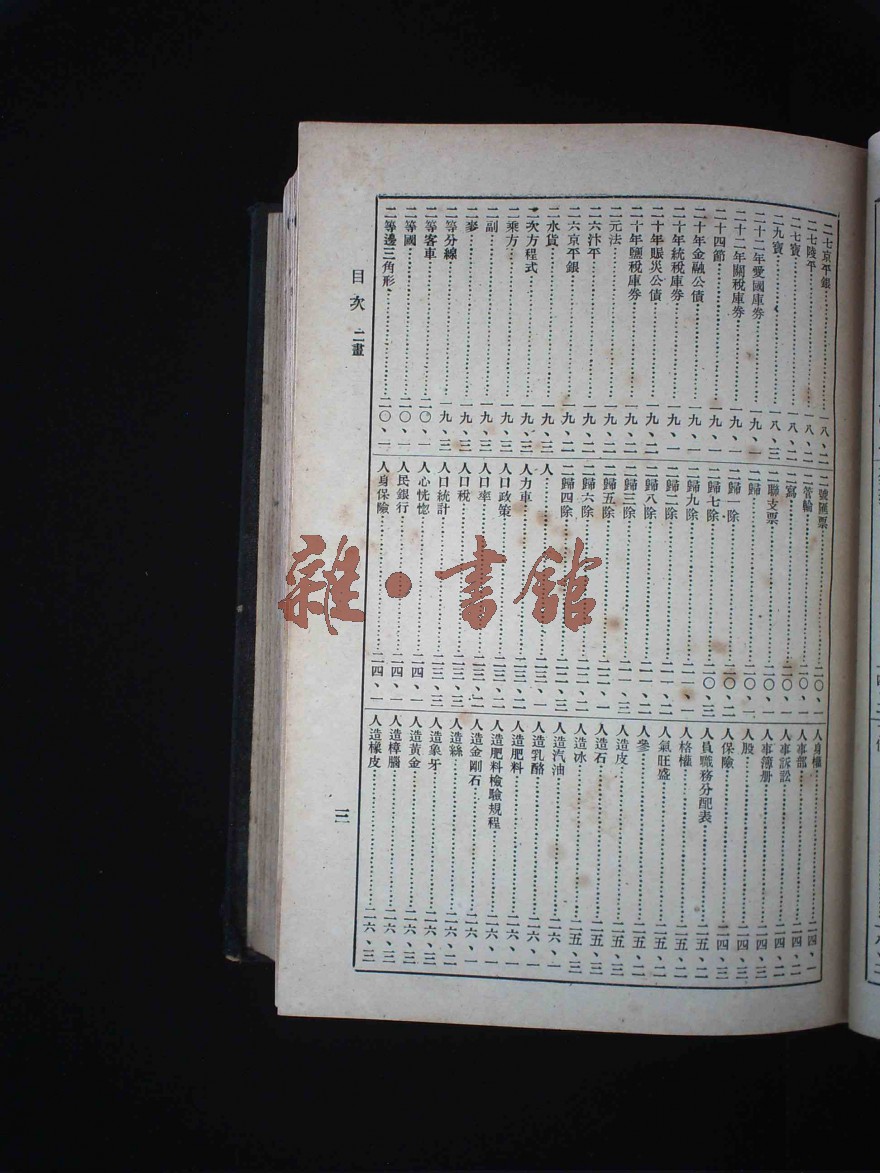 二七京平銀 一八、二
二七陵平 一八、二
二七寶 一八、二
二九寶 一八、三
二十二年愛國庫券 一九、一
二十二年關稅庫券 一九、一
二十四節 一九、一
二十年金融公債 一九、一
二十年統稅庫券 一九、一
二十年賑災公債 一九、二
二十年鹽稅庫券 一九、二
二元法 一九、二
二六汴平 一九、二
二六京平銀 一九、二
二水貨 一九、三
二次方程式 一九、三
二乘方 一九、三
二副 一九、三
二麥 一九、三
二等分線 一九、三
二等客車 二〇、一
二等國 二〇、一
二等邊三角形 二〇、一
二號匯票 二〇、一
二管輪 二〇、一
二寫 二〇、一
二聯支票 二〇、一
二歸 二〇、一
二歸一除 二〇、二
二歸七除 二〇、三
二歸九除 二一、
二歸二除 二一、二
二歸八除 二一、二
二歸三除 二一、三
二歸五除 二二、一
二歸六除 二二、二
二歸四除 二二、三
人 二三、一
人力車 二三、二
人口政策 二三、二
人口率 二三、二
人口稅 二三、三
人口統計 二三、三
人心恍惚 二四、一
人民銀行 二四、一
人身保險 二四、一
人身權 二四、一
人事部 二四、二
人事訴訟 二四、二
人事簿册 二四、三
人股 二四、三
人保險 二四、三
人員職務分配表 二五、二
人格權 二五、二
人氣旺盛 二五、二
人參 二五、二
人造皮 二五、三
人造石 二五、三
人造冰 二五、三
人造汽油 二六、一
人造乳酪 二六、一
人造肥料 二六、一
人造肥料檢驗規程 二六、一
人造金剛石 二六、二
人造絲 二六、二
人造象牙 二六、三
人造黃金 二六、三
人造樟腦 二六、三
人造橡皮 二六、三
目次 二畫
三
雜·書館